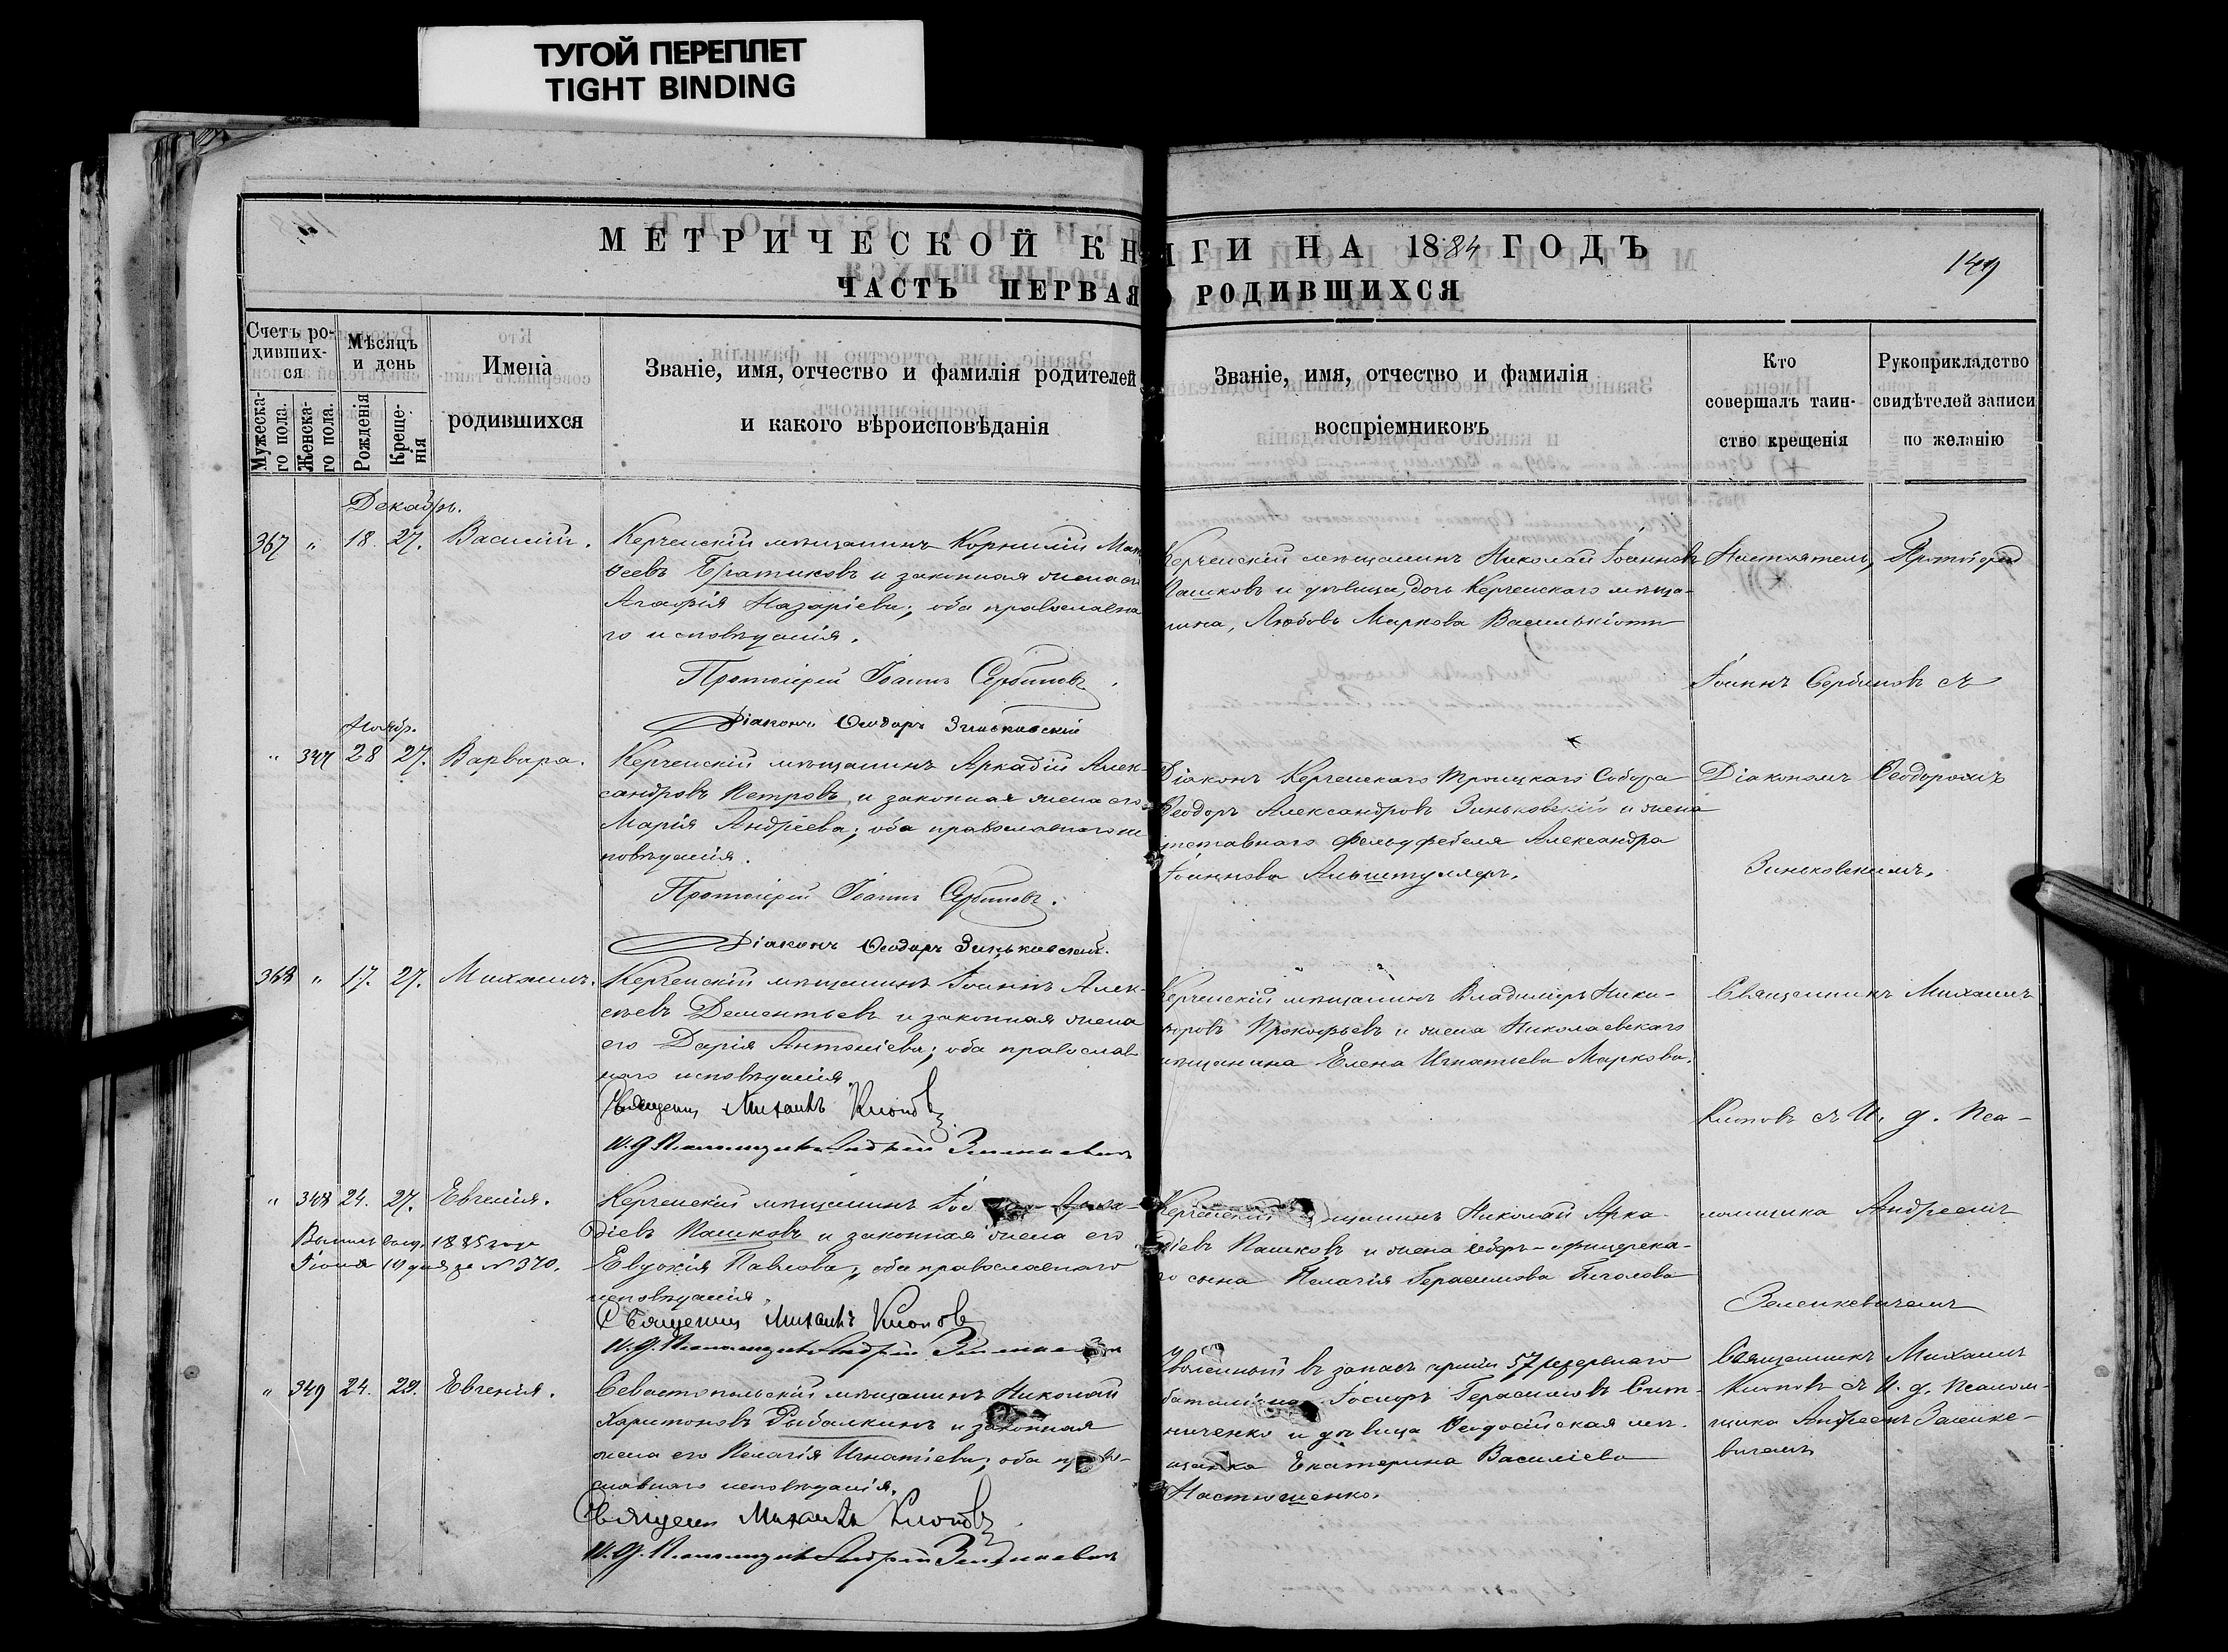 ТУГОЙ ПЕРЕПЛЕТ
TIGHT BINDING
МЕТРИЧЕСКОЙ КНИГИ НА 1884 ГОДЪ
149
ЧАСТЬ ПЕРВАЯ О РОДИВШИХСЯ
Счетъ ро-
дивших-
ся
Мужеска-
го пола.
Женска-
го пола.
Мѣсяцъ
и день
Рожденія
Креще-
нія
Имена
родившихся
Званіе, имя, отчество и фамилія родителей
и какого вѣроисповѣданія
Званіе, имя, отчество и фамилія
воспріемниковъ
Кто
совершалъ таин-
ство крещенія
Рукоприкладство
свидѣтелей записи
по желанію
Декабрь.
367 " 18. 27. Василій.
Керченскій мѣщанинъ Корнилій Мат
ѳеевъ Братиковъ и законная жена его
Агафія Назаріева; оба православна
го исповѣданія.
Протоіерей Іоаннъ Сербиновъ.
Діаконъ Ѳеодоръ Зиньковскій
Керченскій мѣщанинъ Николай Іоанновъ
Пашковъ и дѣвица, дочь Керченскаго мѣща-
нина, Любовь Маркова Василькіоти
Настоятель, Протоіерей
Іоаннъ Сербиновъ съ
Ноябр.
" 347 28 27. Варвара.
Керченскій мѣщанинъ Аркадій Алек-
сандровъ Петровъ и законная жена его
Марія Андреева; оба православнаго ис
повѣданія.
Протоіерей Іоаннъ Сербиновъ.
Діаконъ Ѳеодоръ Зиньковскій.
Діаконъ Керченскаго Троицкаго Собора
Ѳеодоръ Александровъ Зиньковскій и жена
отставнаго фельдфебеля Александра
Іоаннова Альштуллеръ.
Діакономъ Ѳеодоромъ
Зиньковскимъ.
368 " 17. 27. Михаилъ.
Керченскій мѣщанинъ Іоаннъ Алек-
сѣевъ Дементьевъ и законная жена
его Дарія Антоніева; оба православ
наго исповѣданія.
Священн Михаилъ Клоповъ
И. д. Псаломщика Андрей Зеленкевичъ
Керченскій мѣщанинъ Владиміръ Ники-
форовъ Прокофьевъ и жена Николаевскаго
мѣщанина Елена Игнатьева Маркова.
Священникъ Михаилъ
Клоповъ съ И. д. Пса-
" 348 24. 27. Евгенія.
Выпись выд. 1885 года
Іюня 19 дня за № 370.
Керченскій мѣщанинъ Арка-
діевъ Пашковъ и законная жена его
Евдокія Павлова; оба православнаго
исповѣданія.
Священн Михаилъ Клоповъ
И. д. Псаломщика Андрей Зеленкевичъ
Керченскій мѣщанинъ Николай Арка-
діевъ Пашковъ и жена оберъ-офицерска-
го сына Пелагія Герасимова
ломщика Андреемъ
Зеленкевичемъ
" 349 24. 29. Евгенія.
Севастопольскій мѣщанинъ Николай
Харитоновъ Рыбалкинъ и законная
жена его Пелагія Игнатіева; оба право-
славнаго исповѣданія.
Священн Михаилъ Клоповъ
И. д. Псаломщика Андрей Зеленкевичъ
Уволенный въ запасъ арміи 57 резервнаго
баталіона Герасимовъ Сит-
ниченко и дѣвица Ѳеодосійская мѣ-
щанка Екатерина Василіева
Настюшенко.
Священникъ Михаилъ
Клоповъ съ И. д. псалом-
щика Андреемъ Зеленке-
вичемъ